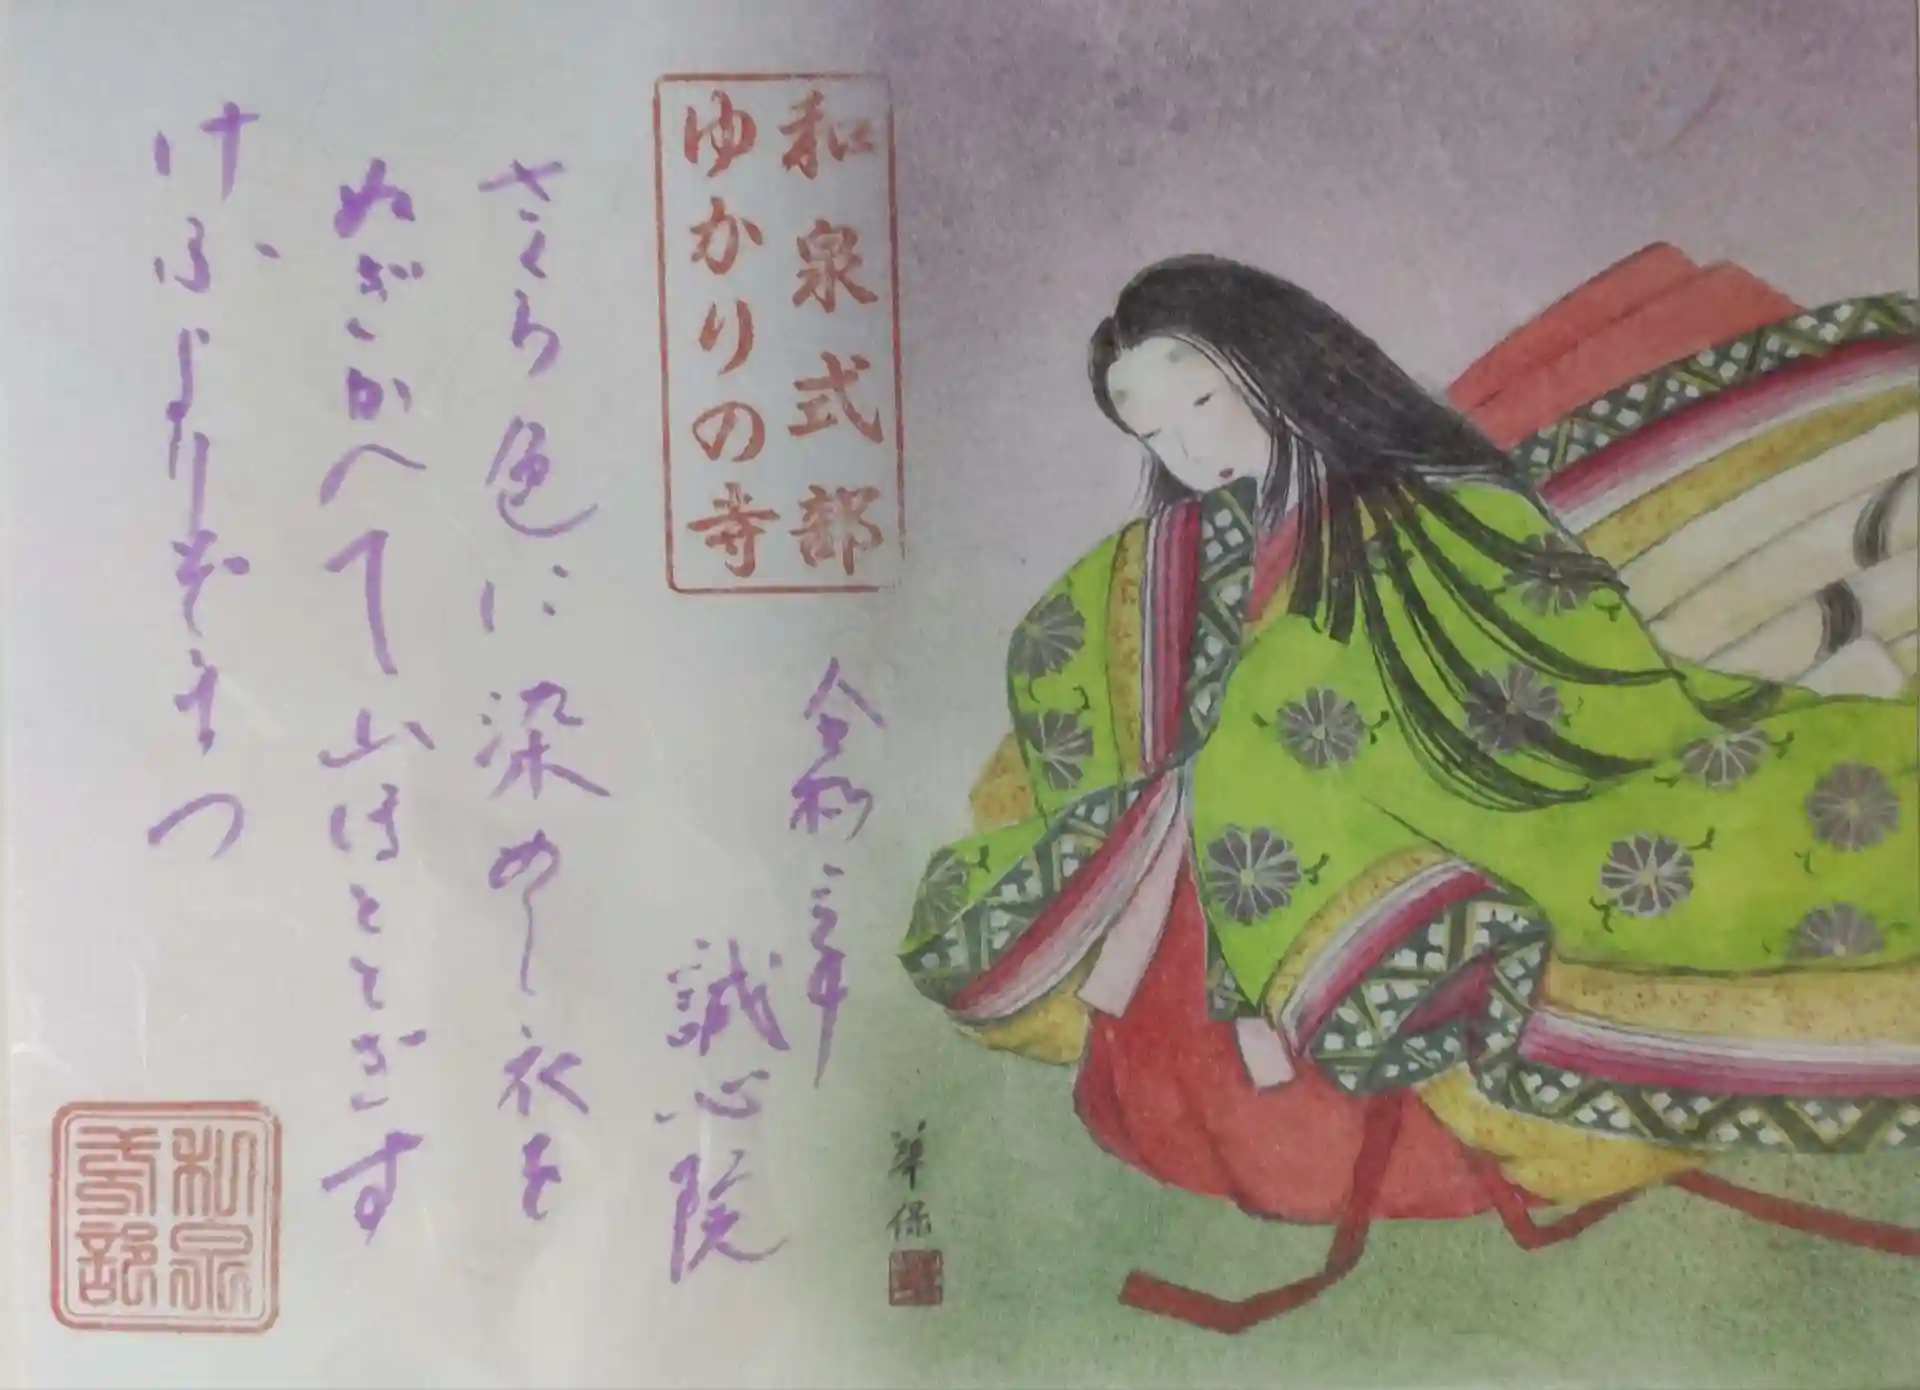 和泉式部
ゆかりの寺
令和三年
誠心院
さくら色に染めし衣を
ぬぎかへて山ほととぎす
けふよりぞまつ
和泉
式部